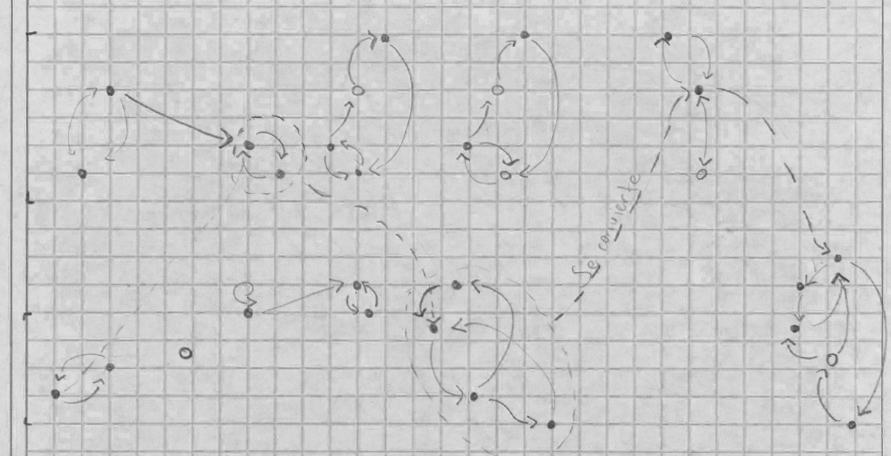 Se convierte